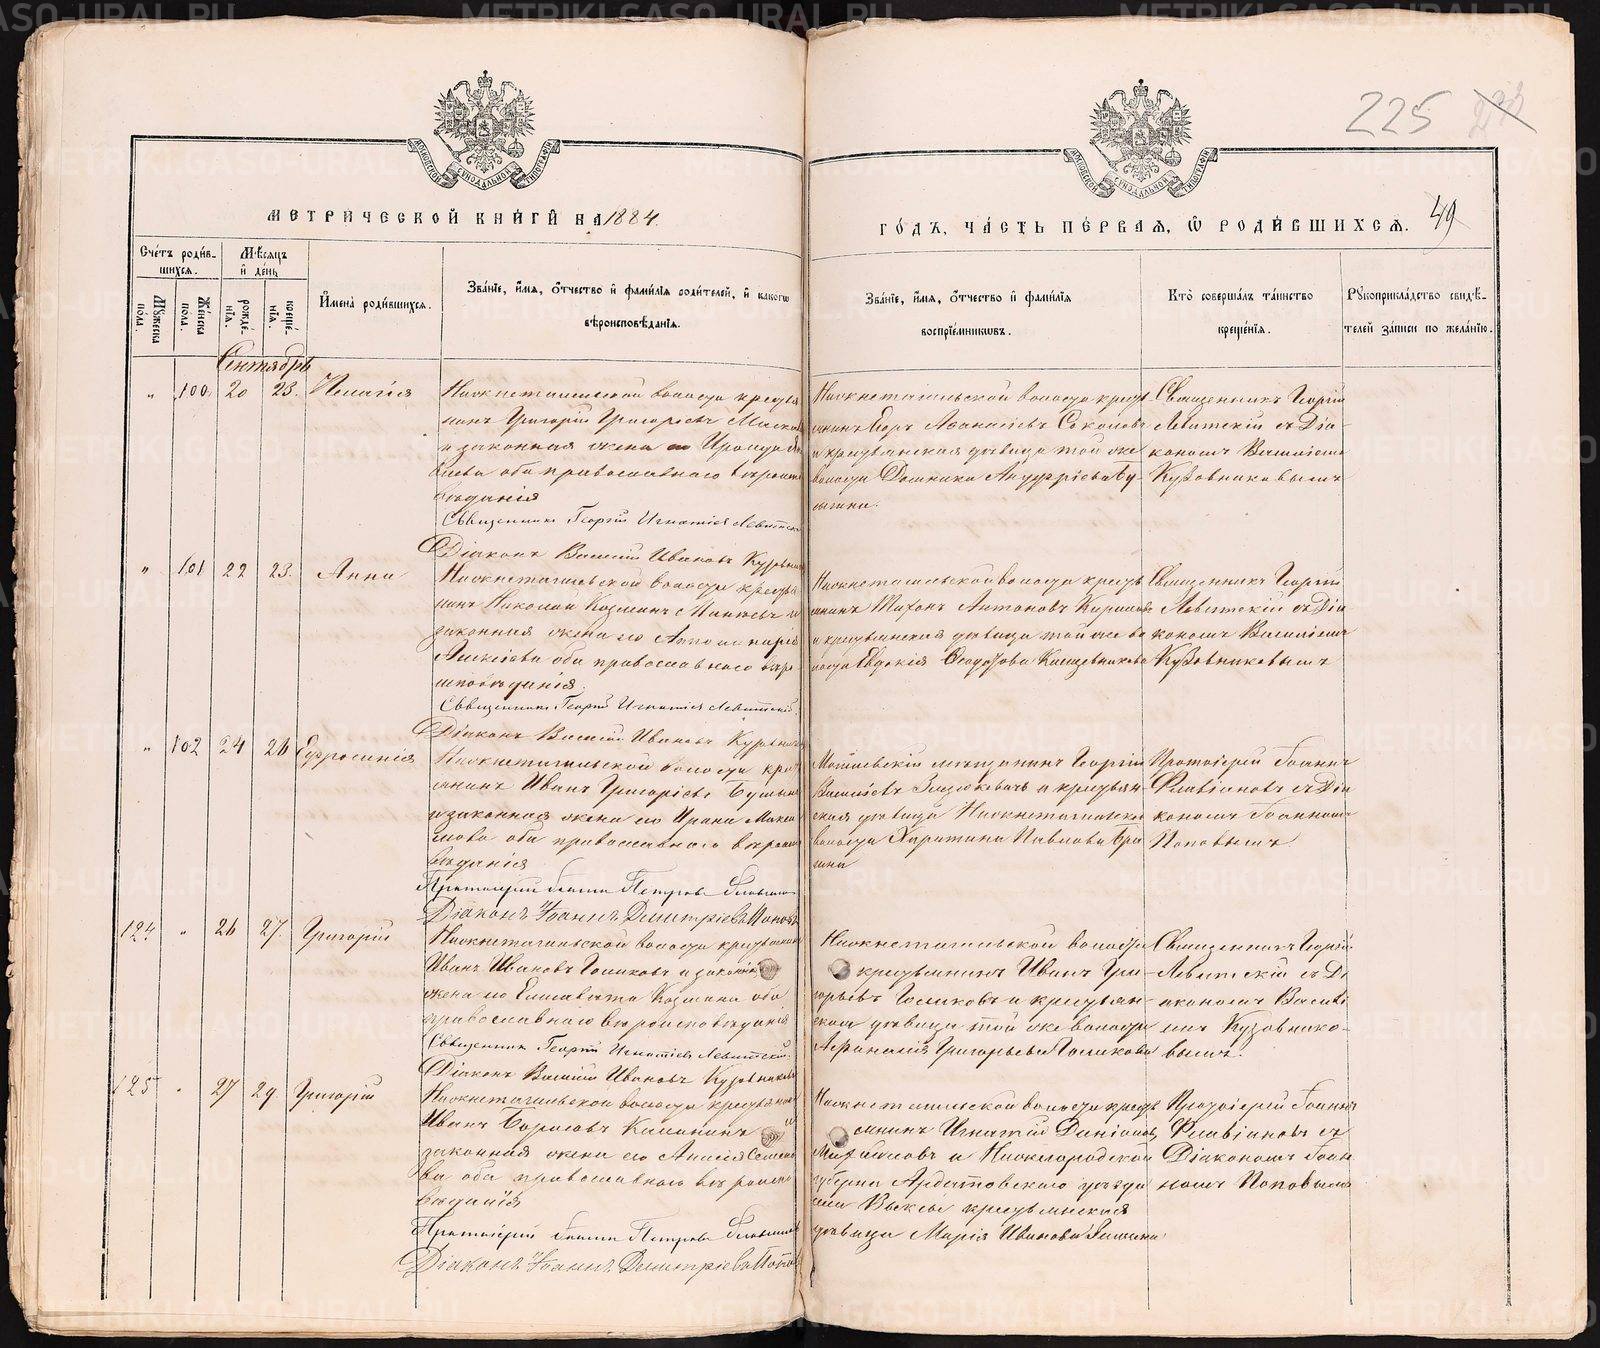 МЕТРИЧЕСКОЙ КНИГИ НА 1884
ГОДЪ, ЧАСТЬ ПЕРВАЯ, Ѡ РОДИВШИХСЯ.
225
49
Счетъ родив-
шихся.
Мѣсяцъ
и день
Мужеска пола.
Женска пола.
рожде-
нія.
креще-
нія.
Имена родившихся.
Званіе, имя, отчество и фамилія родителей, и какогѡ
вѣроисповѣданія.
Званіе, имя, отчество и фамилія
воспріемникѡвъ.
Кто совершалъ таинство
крещенія.
Рукоприкладство свидѣ-
телей записи по желанію.
Сентябрь
" 100 20 23. Пелагія
Нижнетагильской волости кресть
нинъ Григорій Григорьевъ
и законная жена его Ираида
оба православнаго вѣроиспо
вѣданія
Священникъ Георгій Игнатіевъ Левитскій
Діаконъ Василій Ивановъ Кузовников
Нижнетагильской волости кресть
янинъ Егоръ Аѳанасьевъ Соколовъ
и крестьянская дѣвица той же
волости Домника Андреева Бу-
Священникъ Георгій
Левитскій съ Діа-
кономъ Василіемъ
Кузовниковымъ
" 101 22 23. Анна
Нижнетагильской волости кресть
нинъ Николай Козминъ и
законная жена его Апполинарія
Алексіева оба православнаго вѣро
исповѣданія
Священникъ Георгій Игнатіевъ Левитскій
Діаконъ Василій Ивановъ Кузовников
Нижнетагильской волости кресть
янинъ Тихонъ Антоновъ
и крестьянская дѣвица той же во
лости Евдокія Ѳеодотова
Священникъ Георгій
Левитскій съ Діа
кономъ Василіемъ
Кузовниковымъ
" 102 24 26 Евфросинія
Нижнетагильской волости кре
янинъ Иванъ Григорьевъ
и законная жена его Ирина Макси
мова оба православнаго вѣроиспо
вѣданія
Протоіерей Іоаннъ Петровъ Флавіановъ
Діаконъ Іоаннъ Димитріевъ Поповъ
мѣщанинъ Георгій
Васильевъ и крестьян
ская дѣвица Нижнетагильской
волости Харитина Павлова
Протоіерей Іоаннъ
Флавіановъ съ Діа
кономъ Іоанномъ
Поповымъ
124 " 26 27. Григорій
Нижнетагильской волости крестьянинъ
Иванъ Ивановъ Голиковъ и законная
жена его Елисавета Козмина оба
православнаго вѣроисповѣданія
Священникъ Георгій Игнатіевъ Левитскій
Діаконъ Василій Ивановъ Кузовников
Нижнетагильской волости
крестьянинъ Иванъ Гри-
горьевъ Голиковъ и крестьян-
ская дѣвица той же волости
Аѳанасія Григорьева Голикова
Священникъ Георгій
Левитскій съ Ді
акономъ Василі
емъ Кузовнико-
вымъ.
125 " 27 29 Григорій
Нижнетагильской волости крестьянинъ
Иванъ Борисовъ Калининъ и
законная жена его Анисія Семено
ва оба православнаго вѣроиспо
вѣданія
Протоіерей Іоаннъ Петровъ Флавіановъ
Діаконъ Іоаннъ Димитріевъ Поповъ
Нижнетагильской волости кресть
янинъ Игнатій Даніиловъ
и Нижегородской
губерніи Ардатовскаго уѣзда
Выксы крестьянская
дѣвица Марія Иванова
Протоіерей Іоаннъ
Флавіановъ съ
Діакономъ Іоан
номъ Поповымъ
METRIKI.GASO-URAL.RU